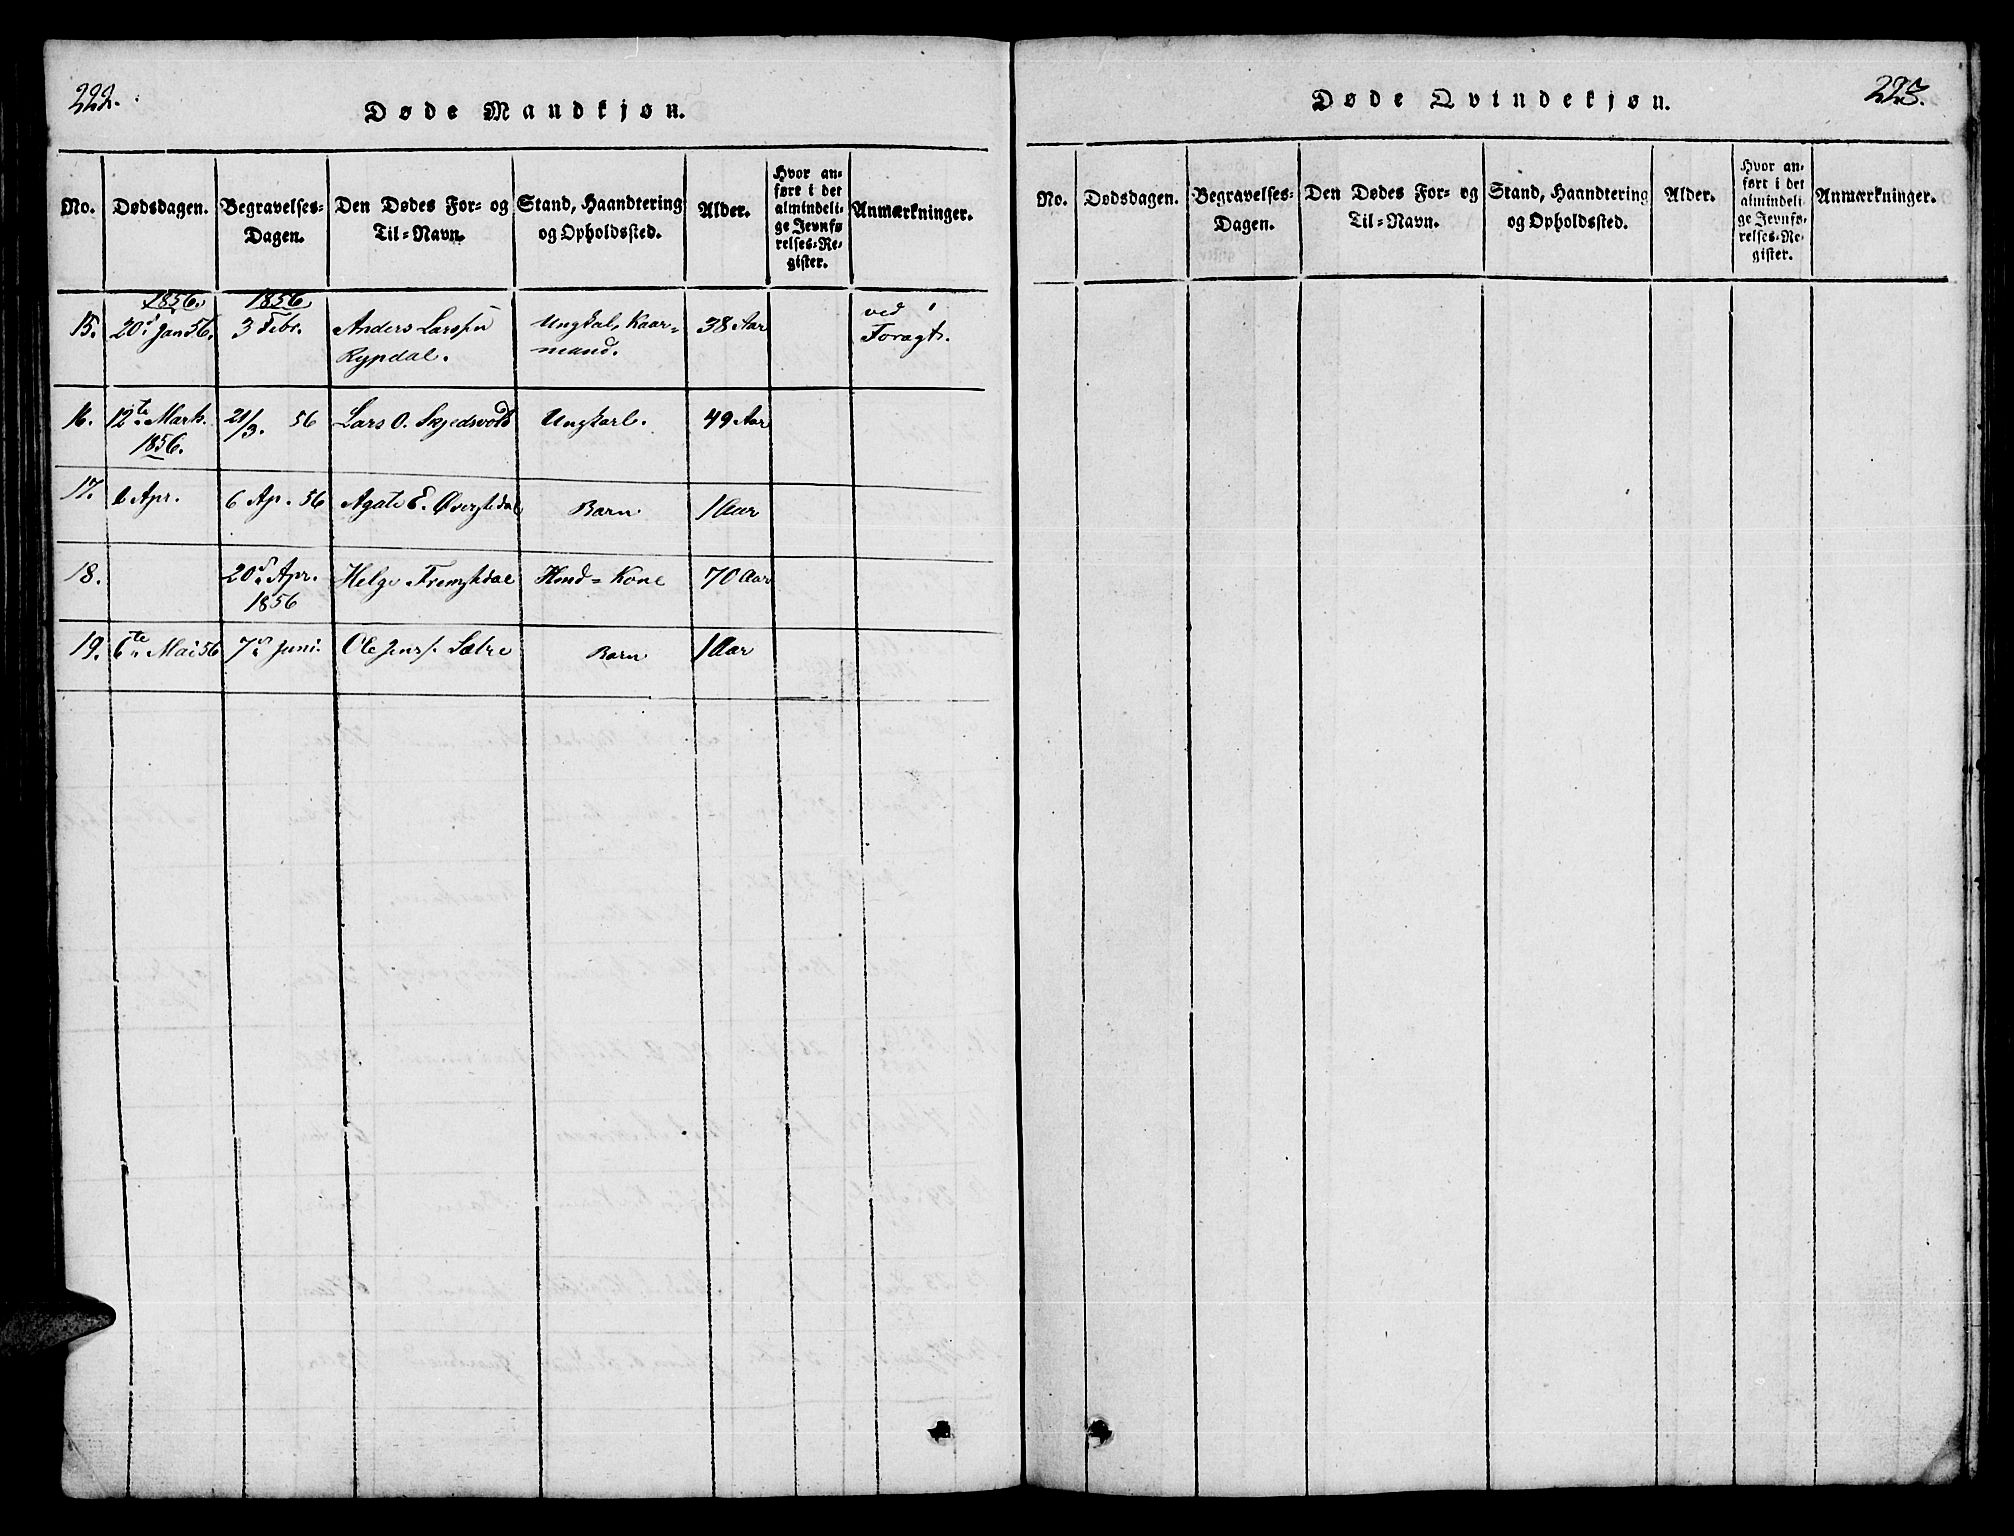 222.
Døde Mandkjøn.
No. Dødsdagen. Begravelses-Dagen. Den Dødes For- og Til-Navn. Stand, Haandtering og Opholdssted. Alder. Hvor anføre i det almindelige Jevnførelses-Register. Anmærkninger.
1856. 1856.
15. 20d Jan 56. 3 Febr. Anders Larsen Rypdal. Ungkal, Kaarmand. 38 Aar ved Foragt.
16. 12te Marts. 1856. 21/3. 56 Lars O. Skjedsvold Ungkarl. 49 Aar
17. 1 Apr. 6 Ap. 56 Agate E. Barn 1 Aar
18. 20d Apr. 1856 Helge Kone 70 Aar
19. 6te Mai 56 7d Juni. Ole Jens. Sætre Barn 1 Aar
223.
Døde Qvindekjøn.
No. Dødsdagen. Begravelses-Dagen. Den Dødes For- og Til-Navn. Stand, Haandtering og Opholdssted. Alder. Hvor anført i det almindelige Jevnførelses-Register. Anmærkninger.